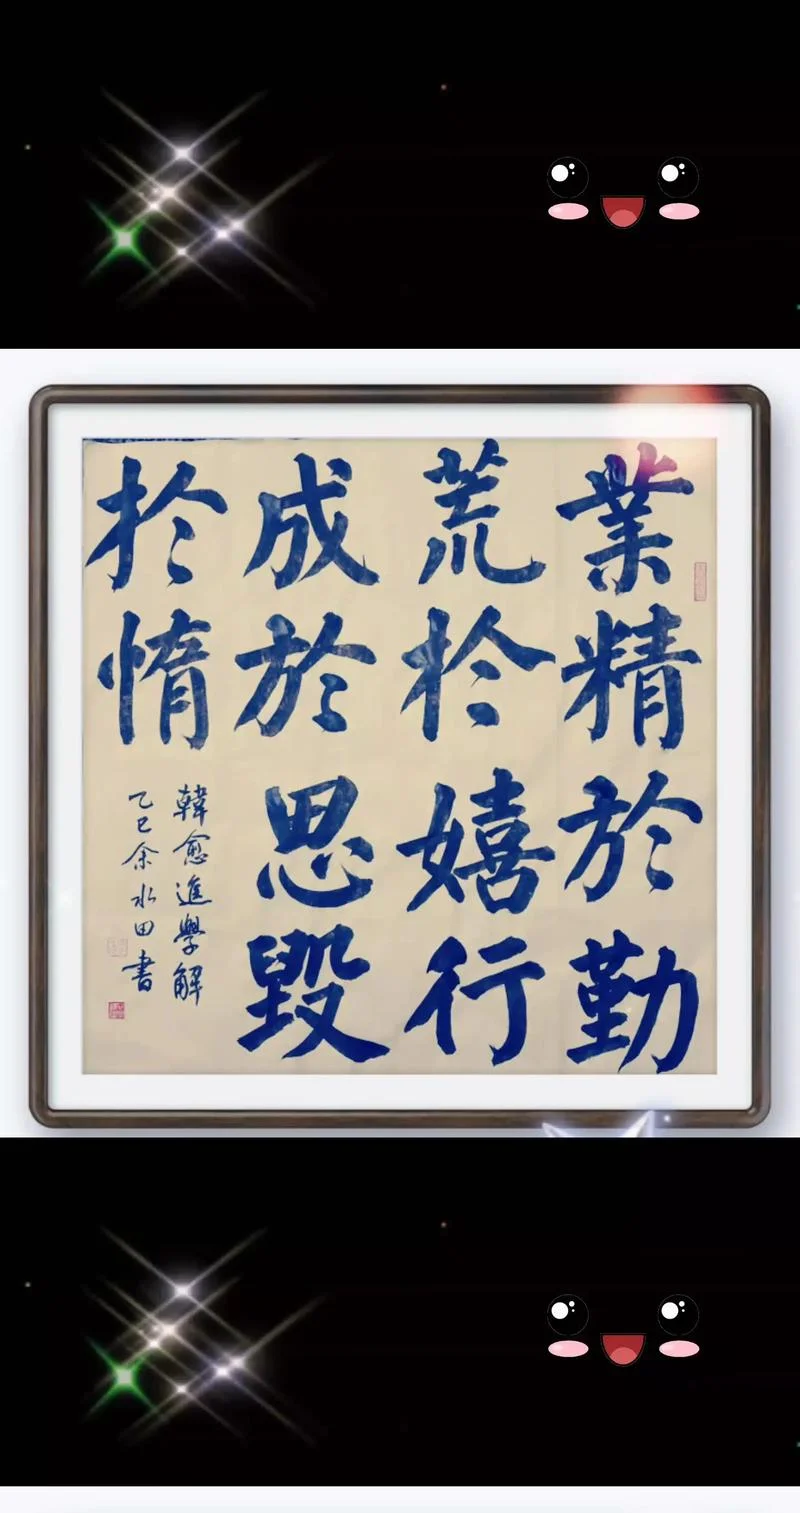 業精於勤
荒於嬉行
成於思毀
於惰
韓愈進學解
乙巳余水田書